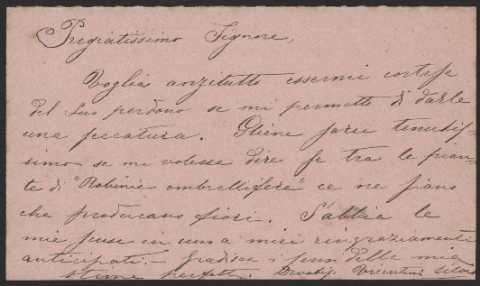 Pregiatissimo Signore,
Voglia anzitutto essermi cortese
del Suo perdono se mi permetto di darle
una seccatura. Le sarei tenutis-
simo se mi volesse dire se tra le pian-
te di "Robinie ombrellifere" ce ne siano
che producano fiori. S'abbia le
mie scuse in uno a miei ringraziamenti
anticipati. - Gradisca i sensi della mia
stima perfetta. Devotis.